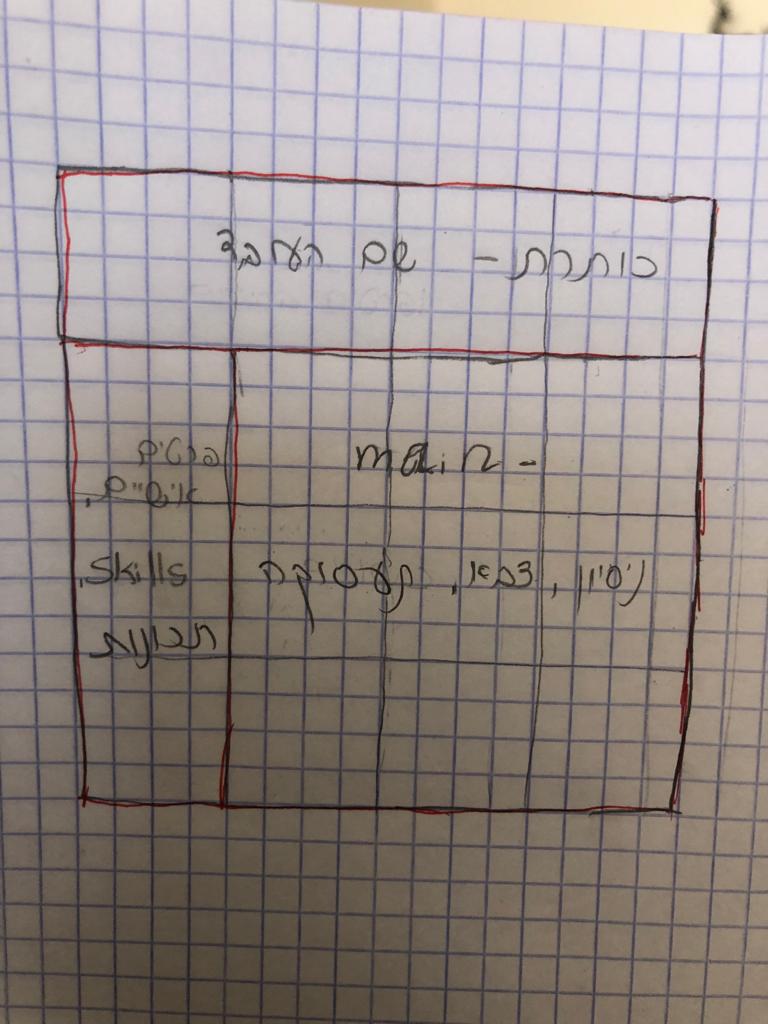 כותרת - שם העבד
main -
ניסיון, צבא, תעסוקה
פרטים
אישיים,
skills,
תכונות